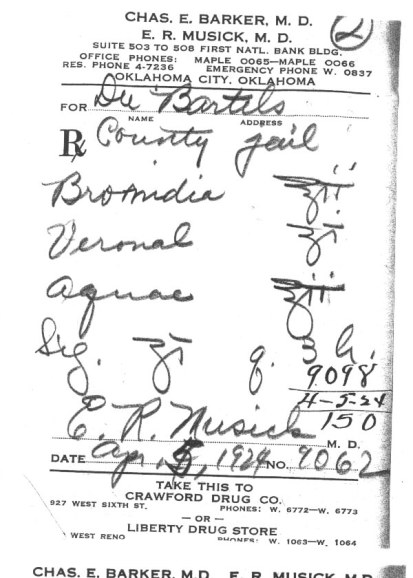 2
CHAS. E. BARKER, M. D.
E. R. MUSICK, M. D.
SUITE 503 TO 508 FIRST NATL. BANK BLDG.
OFFICE PHONES: MAPLE 0065—MAPLE 0066
RES. PHONE 4-7236 EMERGENCY PHONE W. 0837
OKLAHOMA CITY, OKLAHOMA
FOR Bartels
NAME ADDRESS
℞ County jail
Bromidia ʒii
Veronal ʒi
Aquae ʒii
Sig. ʒi q. 3 h.
9098
4-5-24
150
E. R. Musick M. D.
DATE Apr. 5, 1924 NO. 9062
TAKE THIS TO
CRAWFORD DRUG CO.
927 WEST SIXTH ST. PHONES: W. 6772—W. 6773
— OR —
LIBERTY DRUG STORE
WEST RENO PHONES: W. 1063—W. 1064
CHAS. E. BARKER, M. D. E. R. MUSICK, M. D.